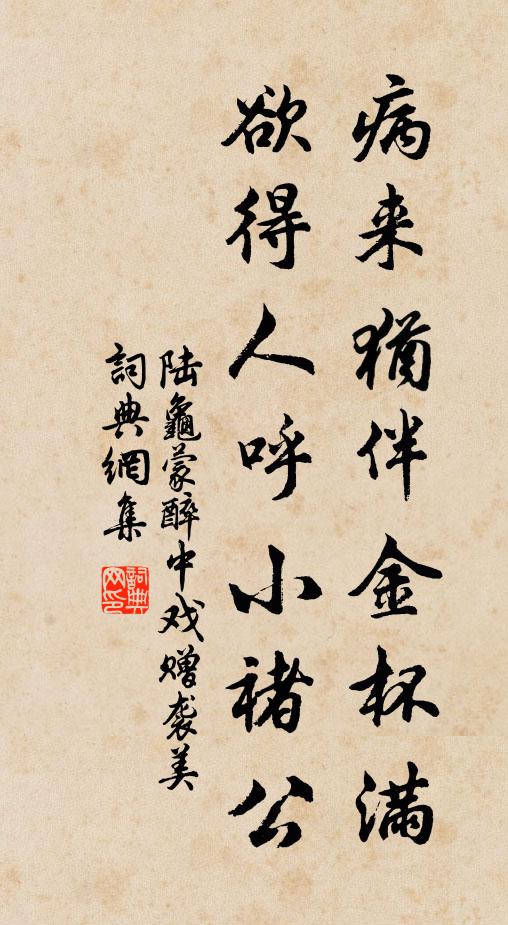 病来猶伴金杯滿
欲得人呼小褚公
陆龜蒙醉中戏赠袭美
詞典網集
詞典网印